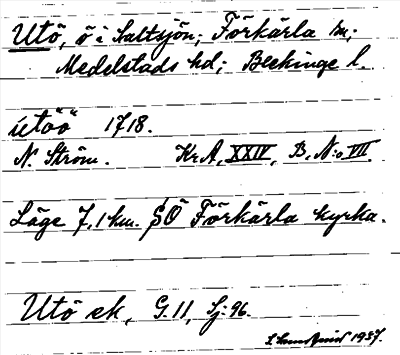 Utö, ö i Saltsjön; Förkärla sn;
Medelstads hd; Blekinge l.
utöö 1718.
N. Ström. Kr A, XXIV, B, N:o VII.
Läge 7,1 km. SÖ Förkärla kyrka.
Utö ek, G. 11, Sj: 96.
1937.